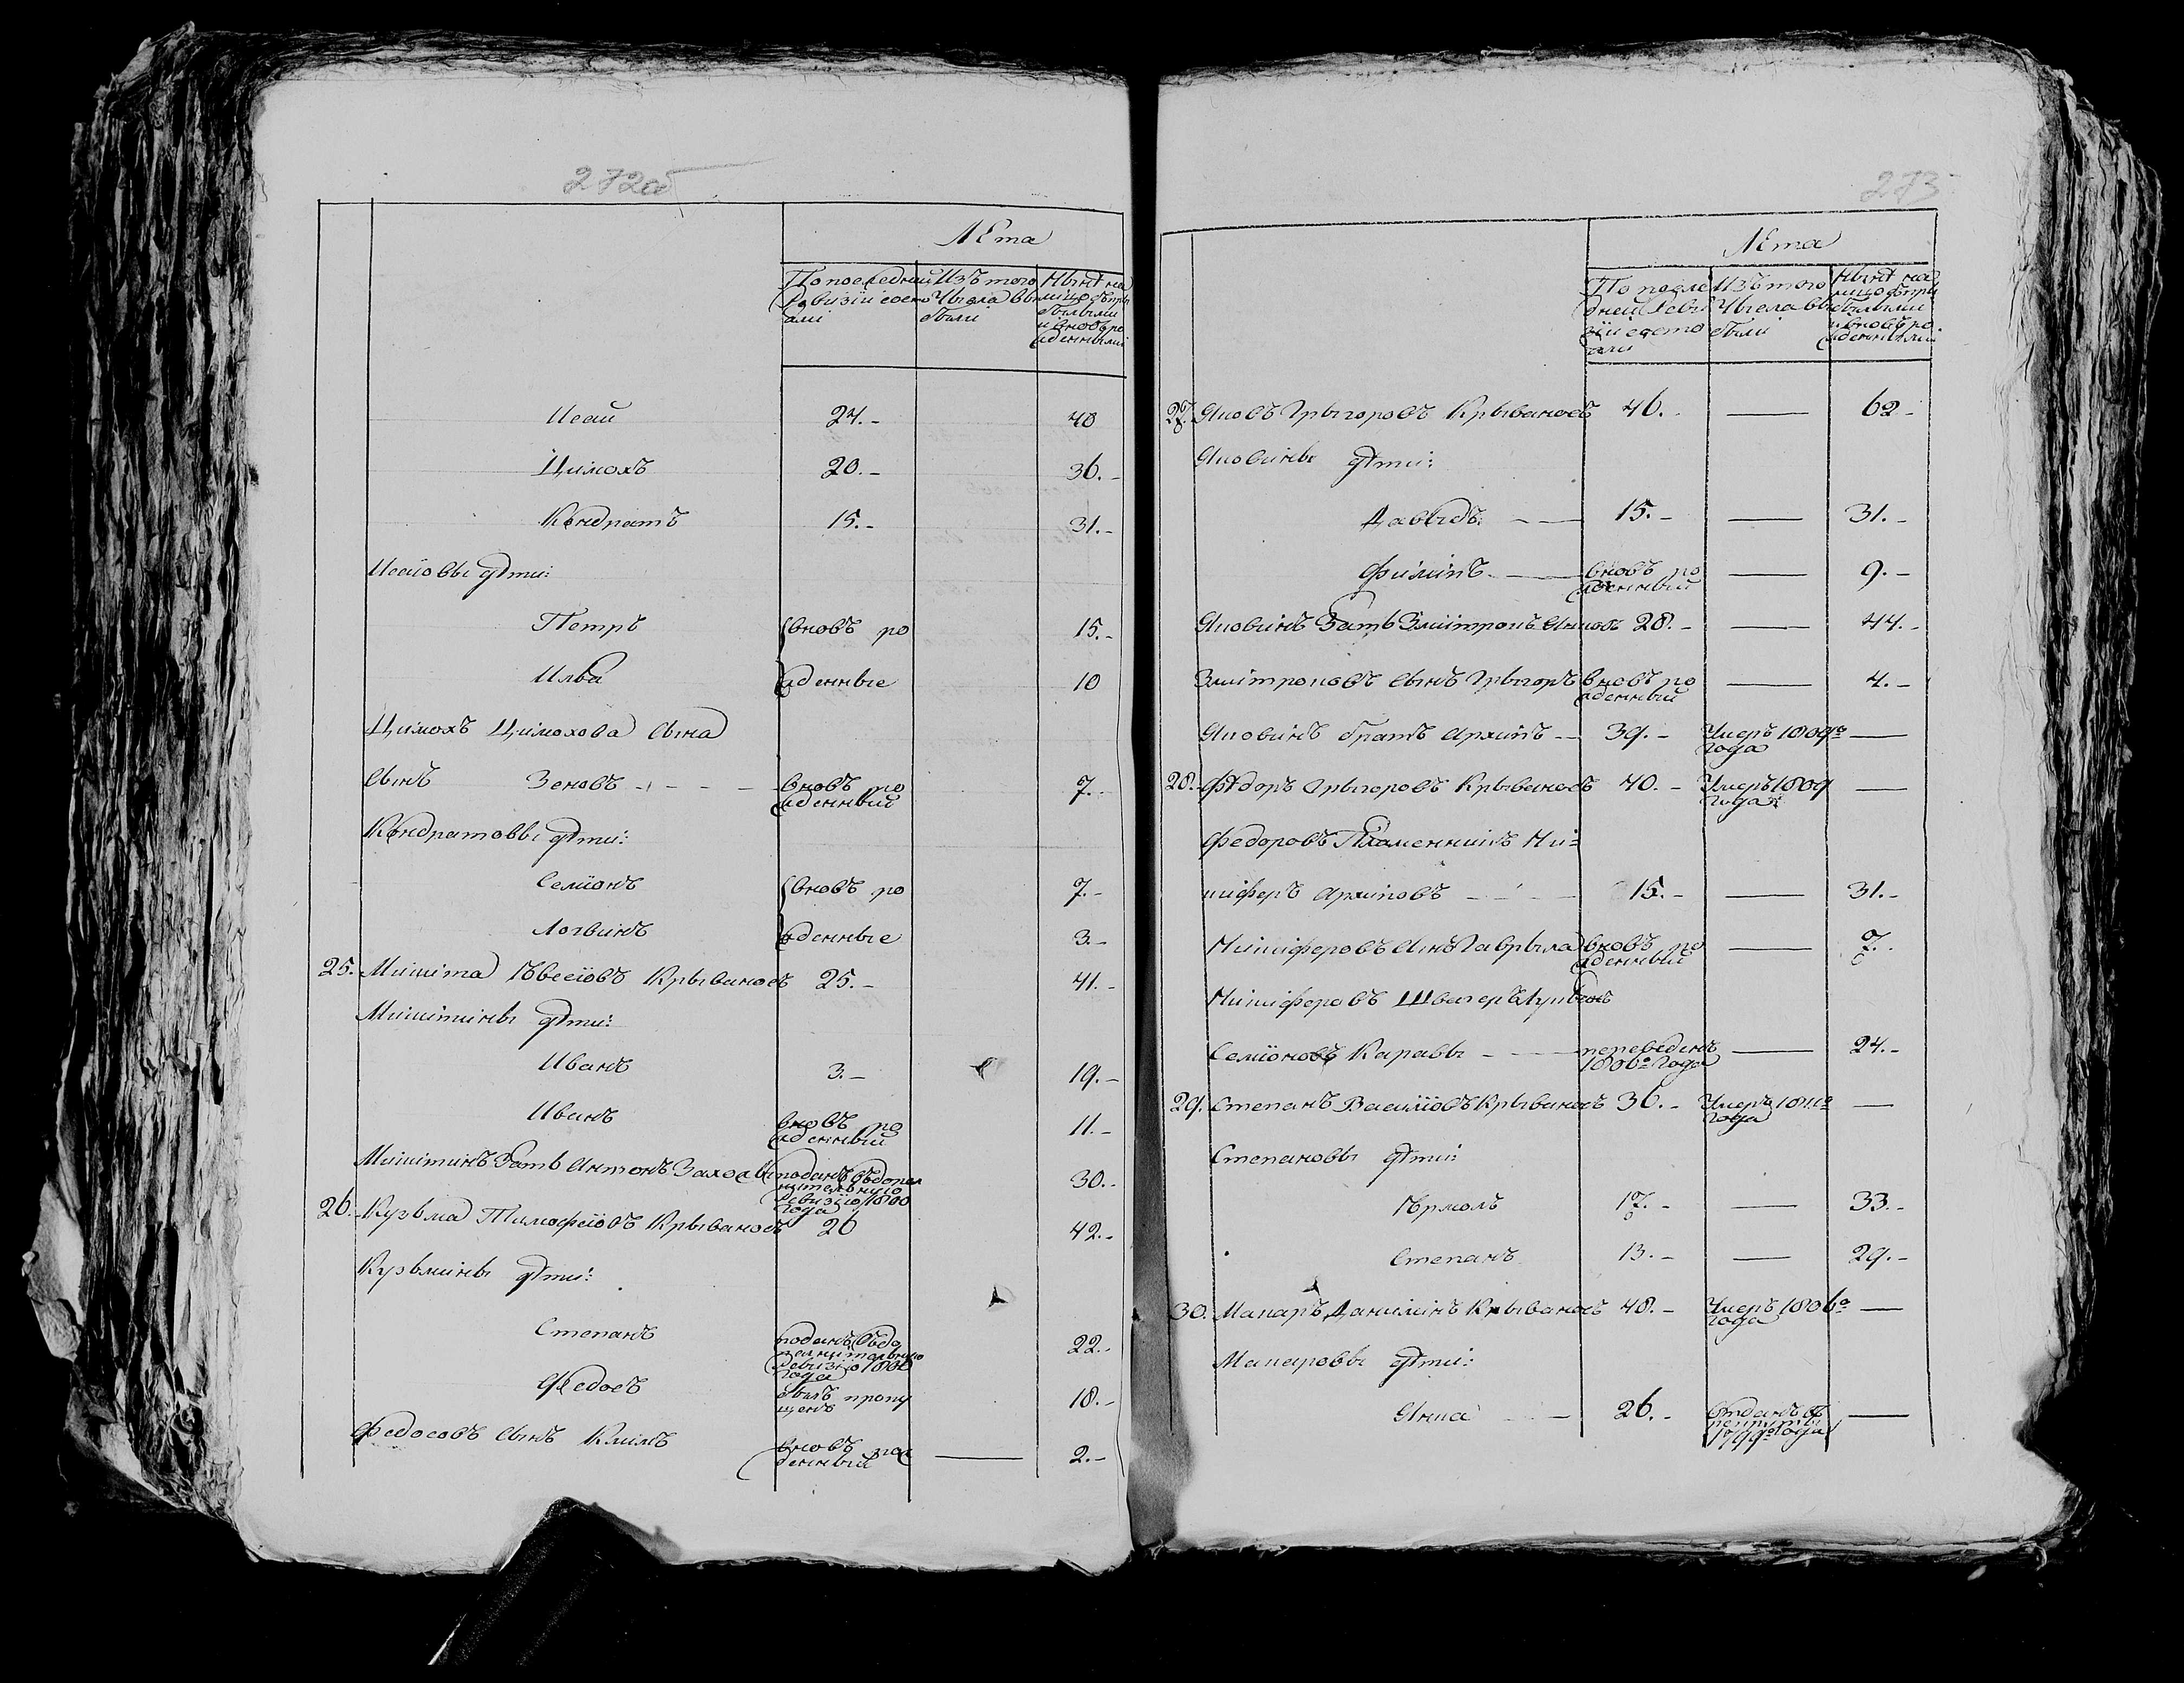 272об
Лета
По последней Ревизіи состояли
Изъ того числа выбыли
Нынѣ на лицо съ прибылыми и вновь рожденными
Исай 24.- 40
Цимохъ 20.- 36.-
Кондратъ 15.- 31.-
Исаіовы дѣти:
Петръ вновь ро 15.-
Илья жденные 10
Цимохъ Цимохова сына
сынъ Зеновъ - - - - вновь рожденный 7.-
Кондратовы дѣти:
Семіонъ вновь ро 7.-
Логвинъ жденные 3.-
25. Микита Евсеіовъ Крываносъ 25.- 41.-
Микитины дѣти:
Иванъ 3.- 19.-
Иванъ вновь рожденный 11.-
Микитинъ зять Антонъ поданъ въ дополнительную ревизію 1800 года 30.-
26. Кузьма Тимофеіовъ Крываносъ 26 42.-
Кузьмины дѣти:
Степанъ поданъ въ дополнительную ревизію 1800 года 22.-
Федосъ былъ пропущенъ 18.-
Федосовъ сынъ Климъ вновь рожденный — 2.-
273
Лета
По последней Ревизіи состояли
Изъ того числа выбыли
Нынѣ на лицо съ прибылыми и вновь рожденными
27. Яковъ Грыгоровъ Крываносъ 46. — 62-
Яковины дѣти:
Давыдъ. - — 15.- — 31.-
Филипъ - — вновь рожденный — 9.-
Яковинъ зять Змитрокъ 28.- — 44.-
Змитроковъ сынъ Грыгоръ вновь рожденный — 4.-
Яковинъ братъ Архипъ - - 39.- Умеръ 1809го года —
28. Фѣдоръ Грыгоровъ Крываносъ 40.- Умеръ 1809 года —
Федоровъ Племенникъ Ни-
киферъ Архиповъ - - - 15.- — 31.-
Никиферовъ сынъ Гаврыла вновь рожденный — 7.-
Никиферовъ Швагеръ
Семіоновъ Каравы - — переведенъ 1806го года — 24.-
29. Степанъ Василіовъ Крываносъ 36.- Умеръ 1811го года —
Степановы дѣти:
Ермолъ 17.- — 33.-
Степанъ 13.- — 29.-
30. Макаръ Данилинъ Крываносъ 48.- Умеръ 1806го года —
Макаровы дѣти:
Янка - — 26.- Отданъ въ рекруты 1799го года —